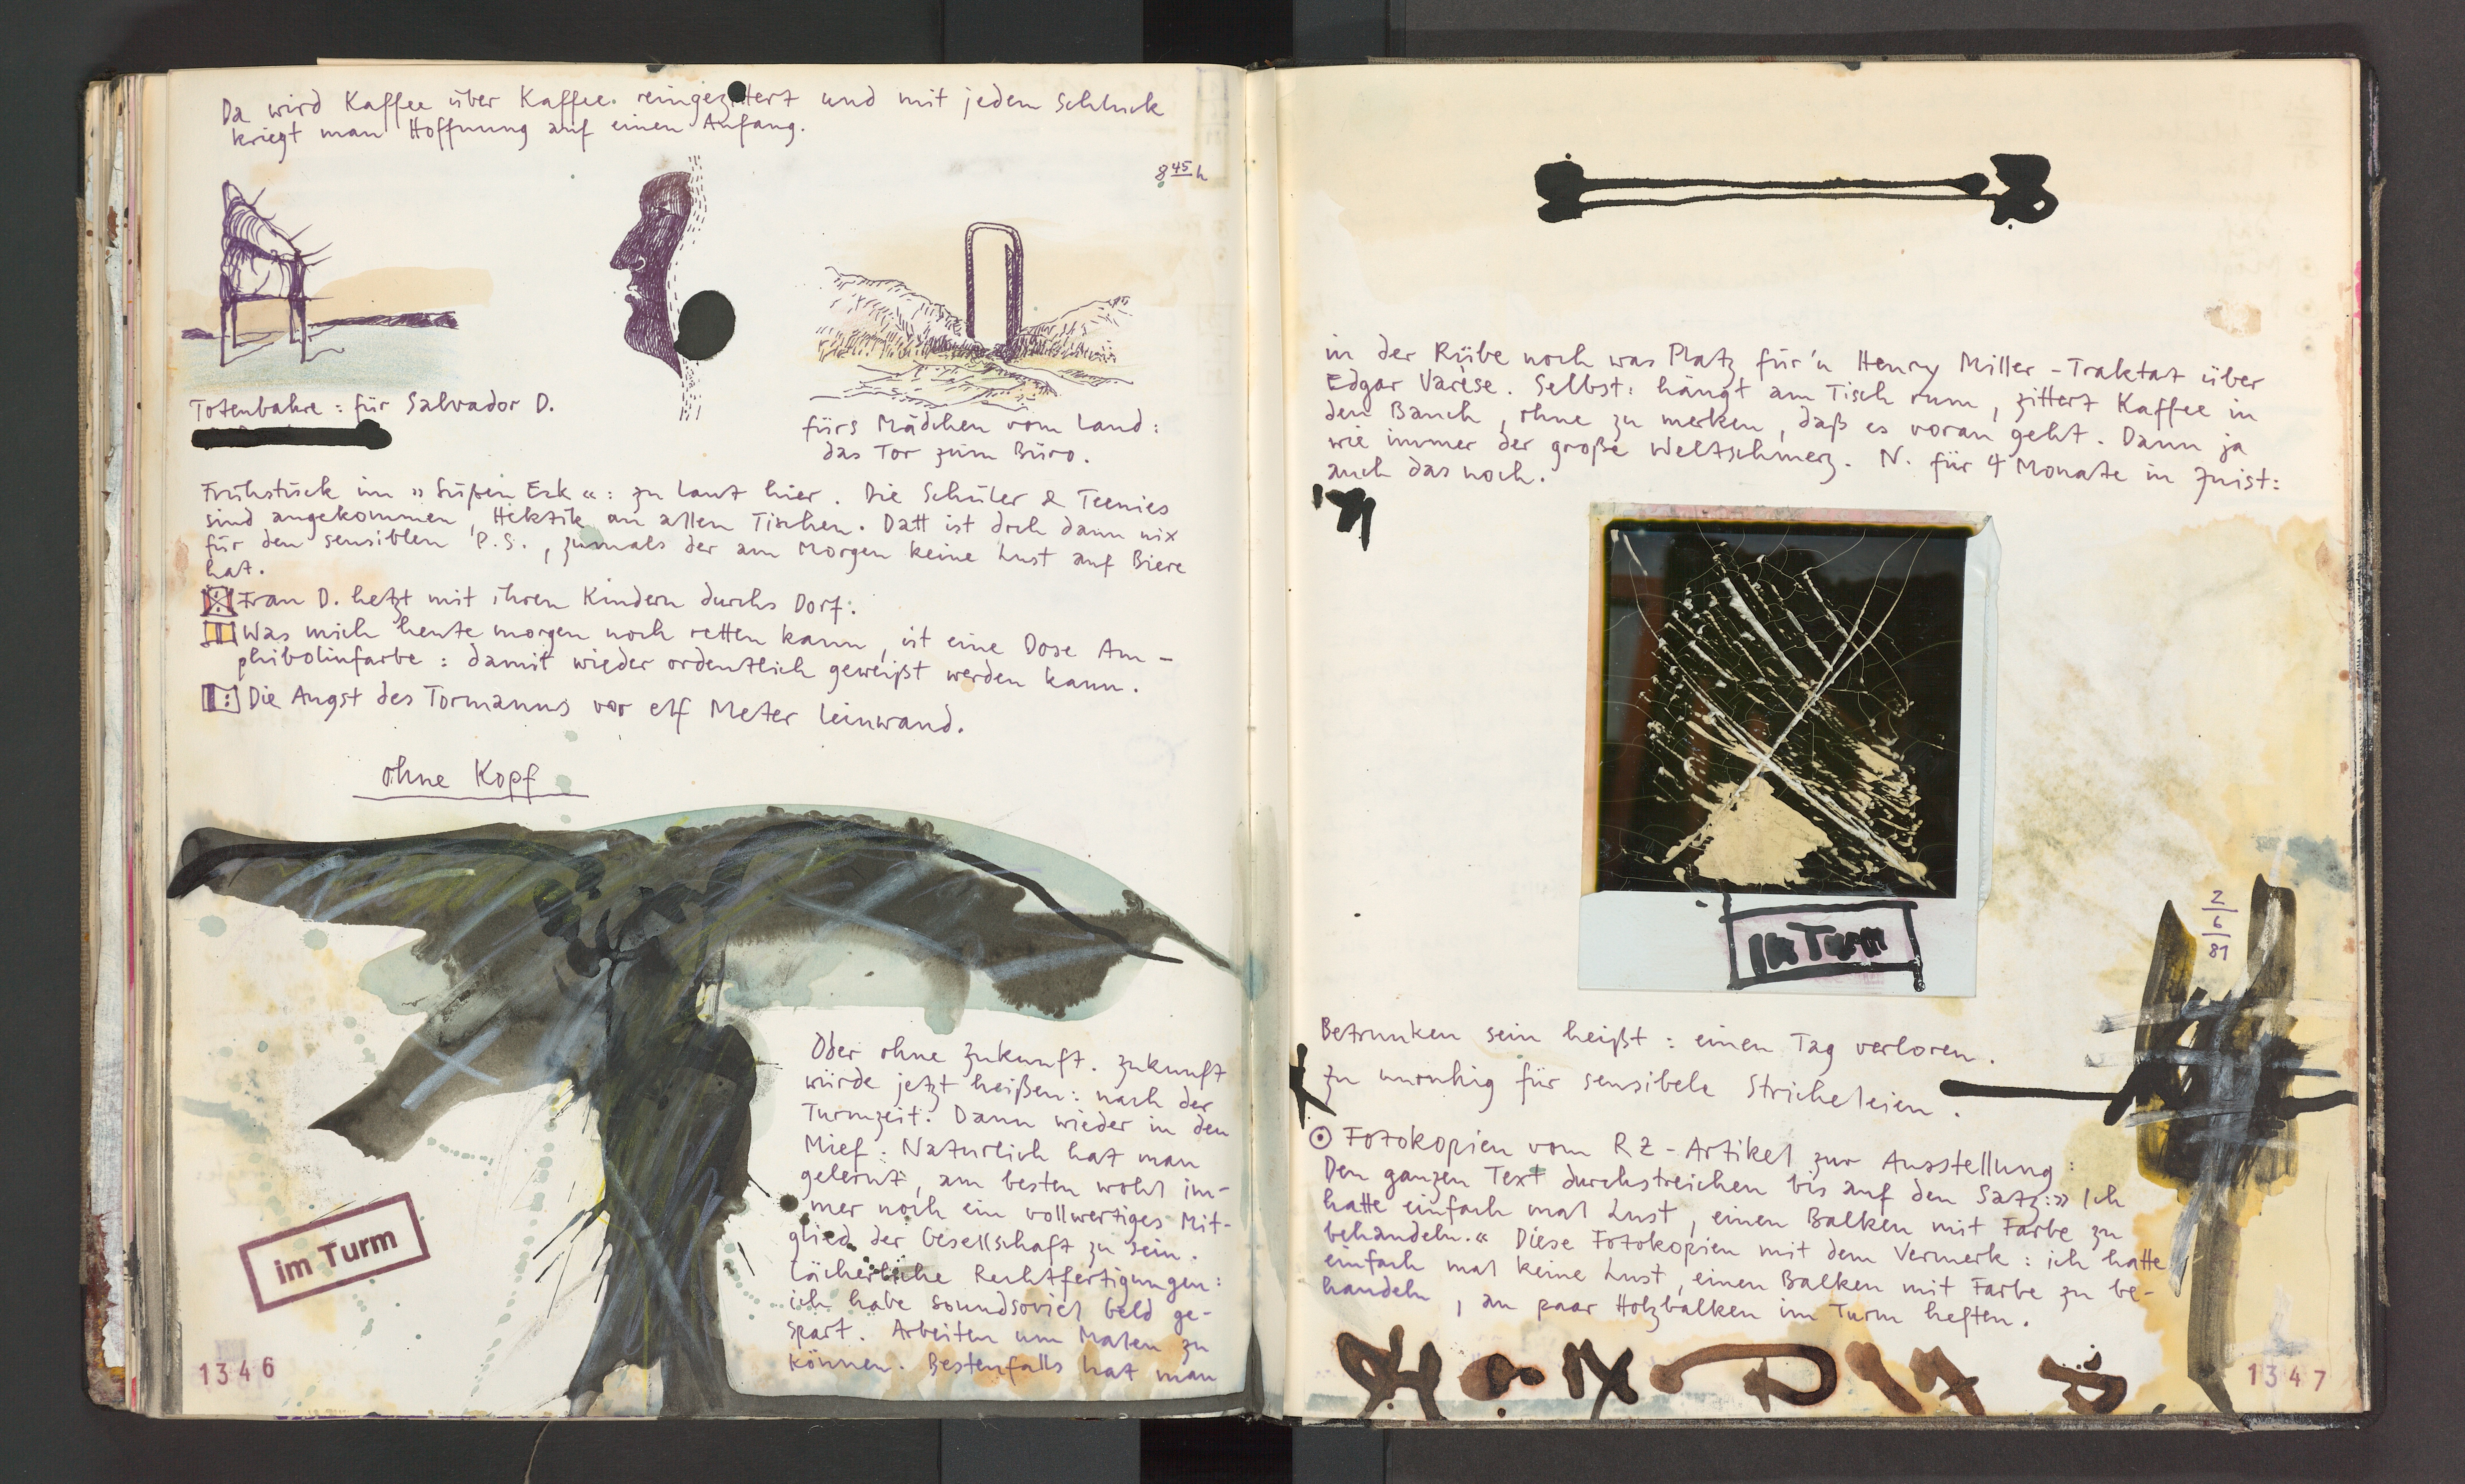 Da wird Kaffee über Kaffee. reingezittert und mit jedem Schluck
kriegt man Hoffnung auf einen Anfang.
8 45 h
Totenbahre : für Salvador D.
fürs Mädchen vom Land :
das Tor zum Büro.
Frühstück im » Süßen Eck « : zu laut hier. Die Schüler & Teenies
sind angekommen, Hektik an allen Tischen. Datt ist doch dann nix
für den sensiblen P.S., zumals der am Morgen keine Lust auf Biere
hat.
Frau D. hetzt mit ihren Kindern durchs Dorf :
Was mich heute morgen noch retten kann, ist eine Dose Am-
phibolinfarbe : damit wieder ordentlich geweißt werden kann.
Die Angst des Tormanns vor elf Meter Leinwand.
ohne Kopf
Oder ohne Zukunft. Zukunft
würde jetzt heißen : nach der
Turmzeit : Dann wieder in den
Mief : Natürlich hat man
gelernt, am besten wohl im-
mer noch ein vollwertiges Mit-
glied der Gesellschaft zu sein.
Lächerliche Rechtfertigungen :
ich habe soundsoviel Geld ge-
spart. Arbeiten um Malen zu
können. Bestenfalls hat man
im Turm
1346
in der Rübe noch was Platz für'n Henry Miller - Traktat über
Edgar Varèse. Selbst : hängt am Tisch rum, zittert Kaffee in
den Bauch, ohne zu merken, daß es voran geht. Dann ja
wie immer der große Weltschmerz. N. für 4 Monate in Knist :
auch das noch.
im Turm
2
6
81
Betrunken sein heißt : einen Tag verloren.
Zu unruhig für sensibele Stricheleien.
Fotokopien vom RZ - Artikel zur Ausstellung :
Den ganzen Text durchstreichen bis auf den Satz : » Ich
hatte einfach mal Lust, einen Balken mit Farbe zu
behandeln. « Diese Fotokopien mit dem Vermerk : ich hatte
einfach mal keine Lust, einen Balken mit Farbe zu be-
handeln, an paar Holzbalken im Turm heften.
1347